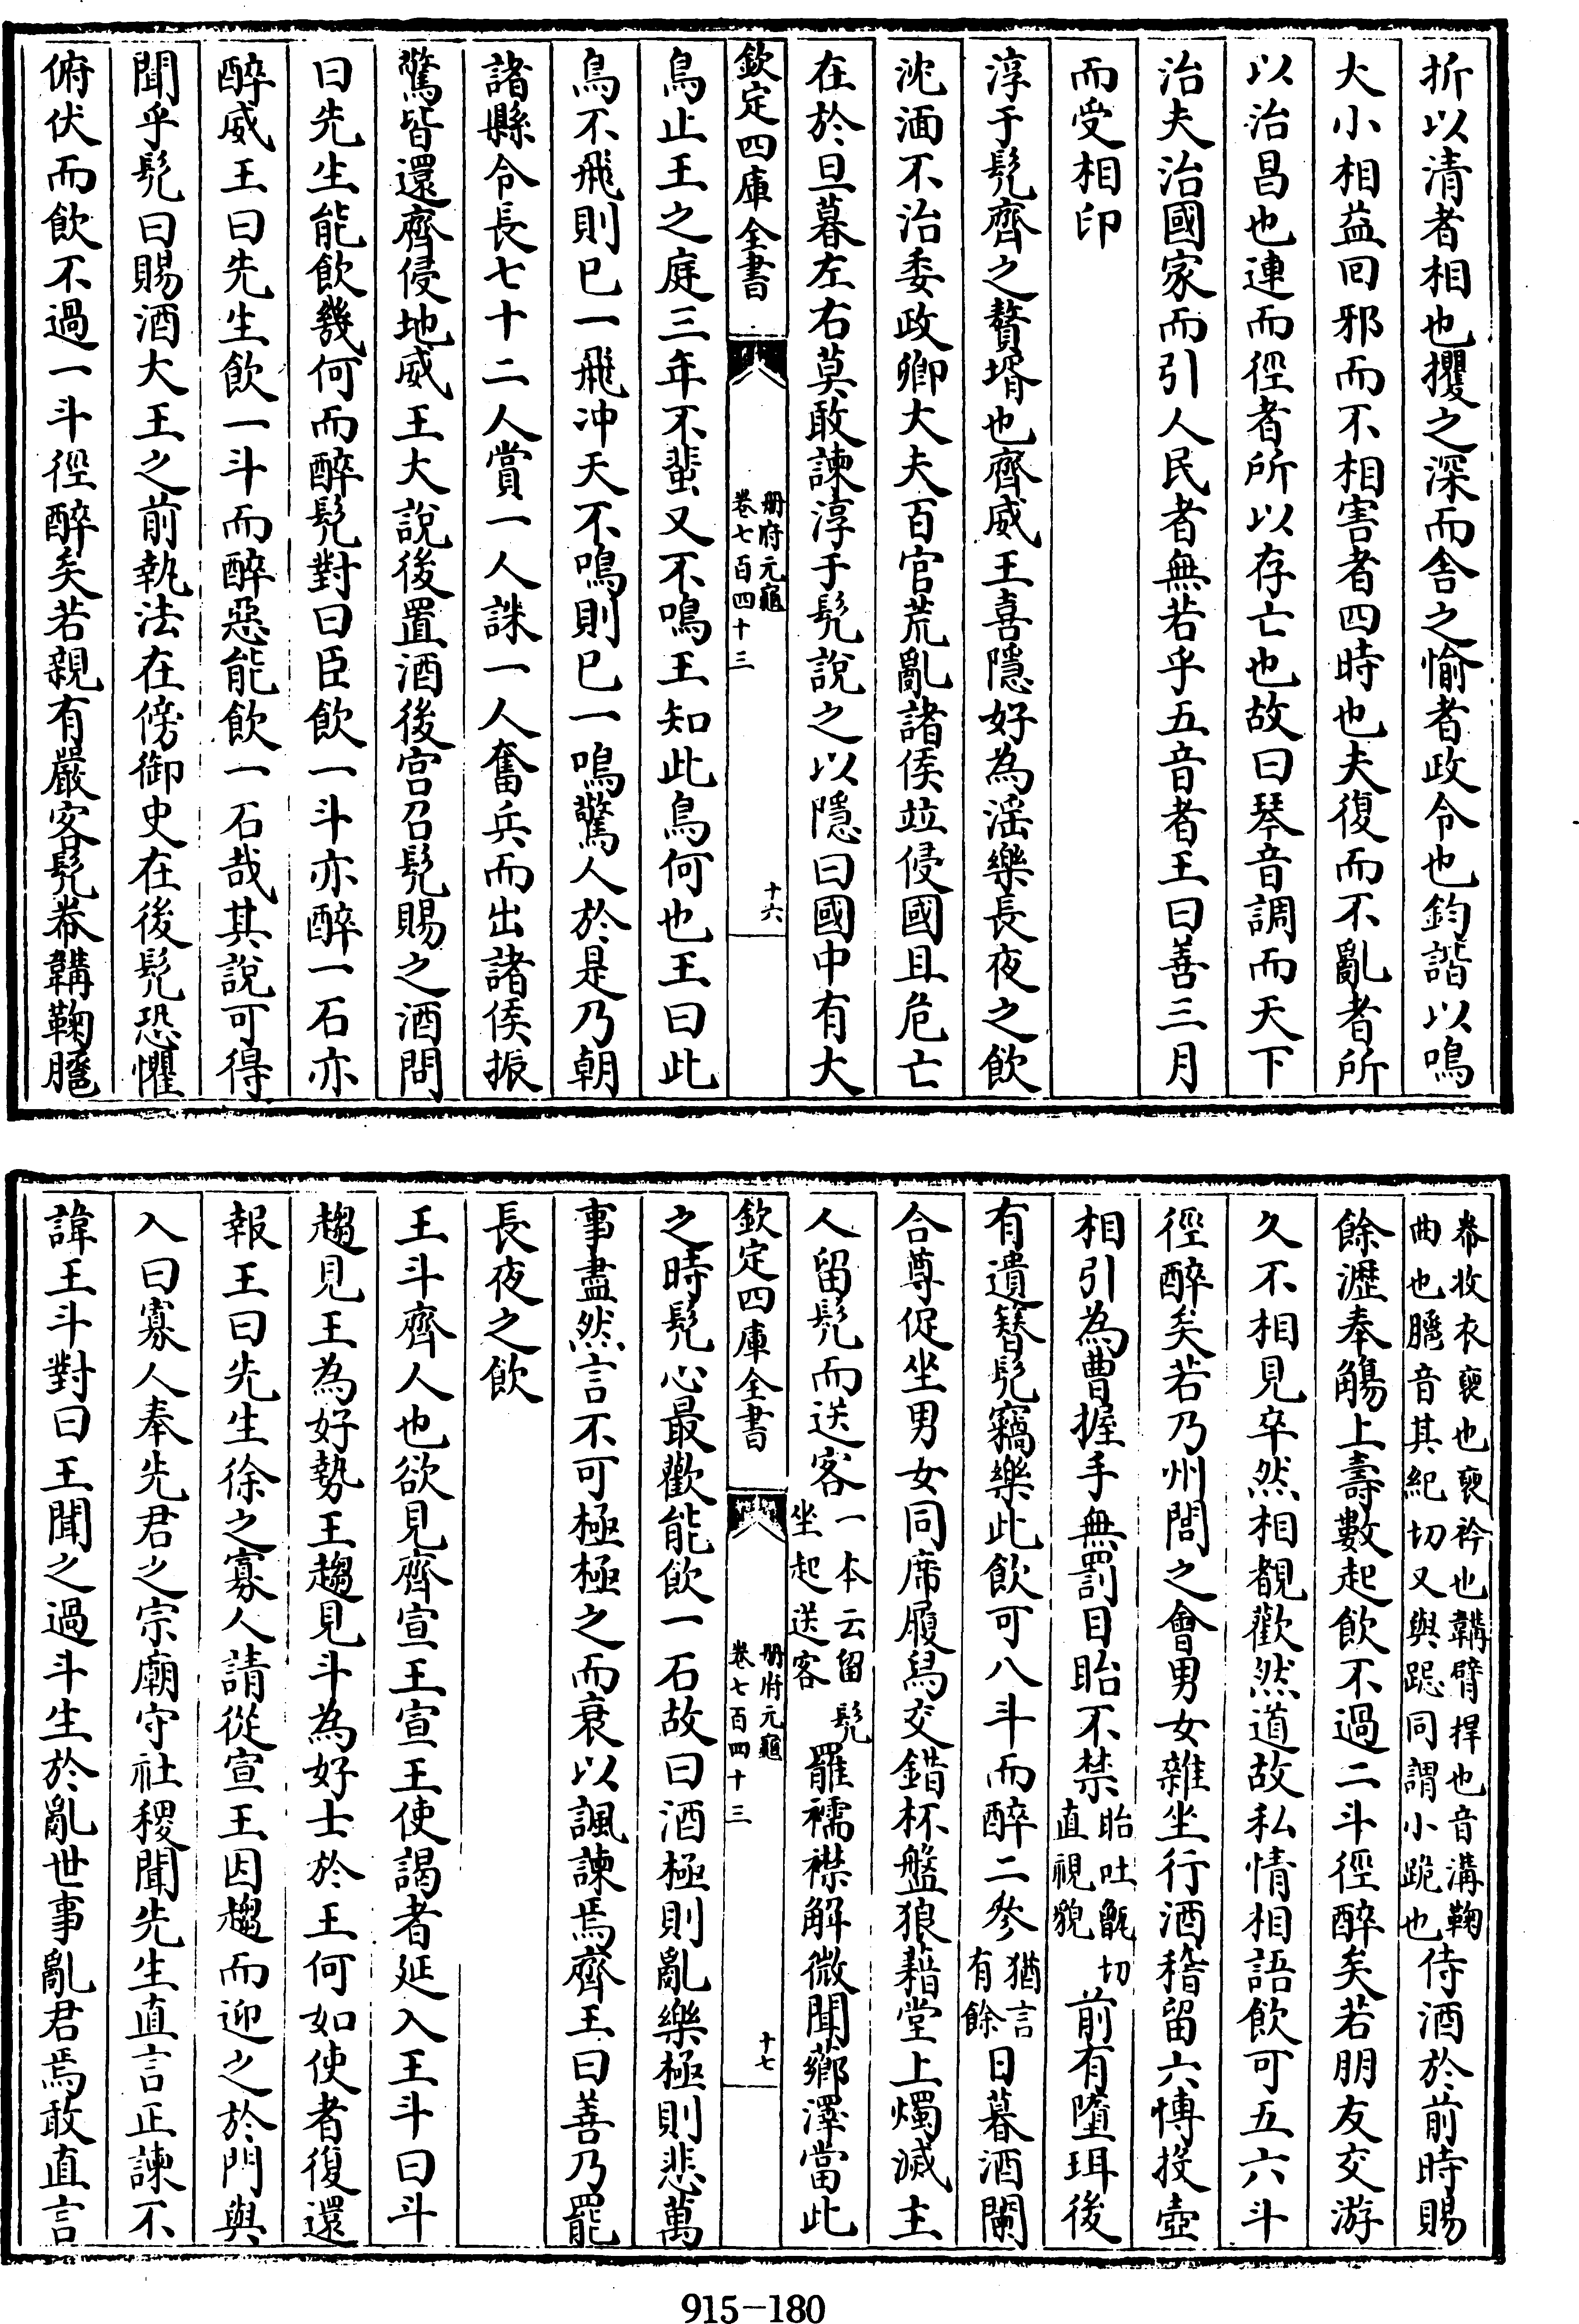 折以清者相也攫之深而舎之愉者政令也鈞諧以鳴
大小相益回邪而不相害者四時也夫復而不亂者所
以治昌也連而徑者所以存亡也故曰琴音調而天下
治夫治國家而引人民者無若乎五音者王曰善三月
而受相印
淳于髡齊之贅壻也齊威王喜隱好為滛樂長夜之飲
沈湎不治委政卿大夫百官荒亂諸侯竝侵國且危亡
在於旦暮左右莫敢諫淳于髡說之以隱曰國中有大
欽定四庫全書
册府元龜
卷七百四十三
十六
鳥止王之庭三年不蜚又不鳴王知此鳥何也王曰此
鳥不飛則已一飛冲天不鳴則已一鳴驚人於是乃朝
諸縣令長七十二人賞一人誅一人奮兵而出諸侯振
驚皆還齊侵地威王大說後置酒後宫召髡賜之酒問
曰先生能飲幾何而醉髡對曰臣飲一斗亦醉一石亦
醉威王曰先生飲一斗而醉惡能飲一石哉其說可得
聞乎髡曰賜酒大王之前執法在傍御史在後髡恐懼
俯伏而飲不過一斗徑醉矣若親有嚴客髡帣韝鞠䠆
帣收衣褏也褏衿也韝臂捍也音溝鞠
曲也䠆音其紀切又與跽同謂小跪也
侍酒於前時賜
餘瀝奉觴上壽數起飲不過二斗徑醉矣若朋友交游
久不相見卒然相覩歡然道故私情相語飲可五六斗
徑醉矣若乃州閭之會男女雜坐行酒稽留六博投壺
相引為曹握手無罰目眙不禁
眙吐甑切
直視貌
前有墮珥後
有遺簪髡竊樂此飲可八斗而醉二參
猶言
有餘
日暮酒闌
合尊促坐男女同席履舄交錯杯盤狼藉堂上燭滅主
人留髡而送客
一本云留髡
坐起送客
羅襦襟解微聞薌澤當此
欽定四庫全書
册府元龜
卷七百四十三
十七
之時髡心最歡能飲一石故曰酒極則亂樂極則悲萬
事盡然言不可極極之而衰以諷諫焉齊王曰善乃罷
長夜之飲
王斗齊人也欲見齊宣王宣王使謁者延入王斗曰斗
趨見王為好勢王趨見斗為好士於王何如使者復還
報王曰先生徐之寡人請從宣王因趨而迎之於門與
入曰寡人奉先君之宗廟守社稷聞先生直言正諫不
諱王斗對曰王聞之過斗生於亂世事亂君焉敢直言
915-180